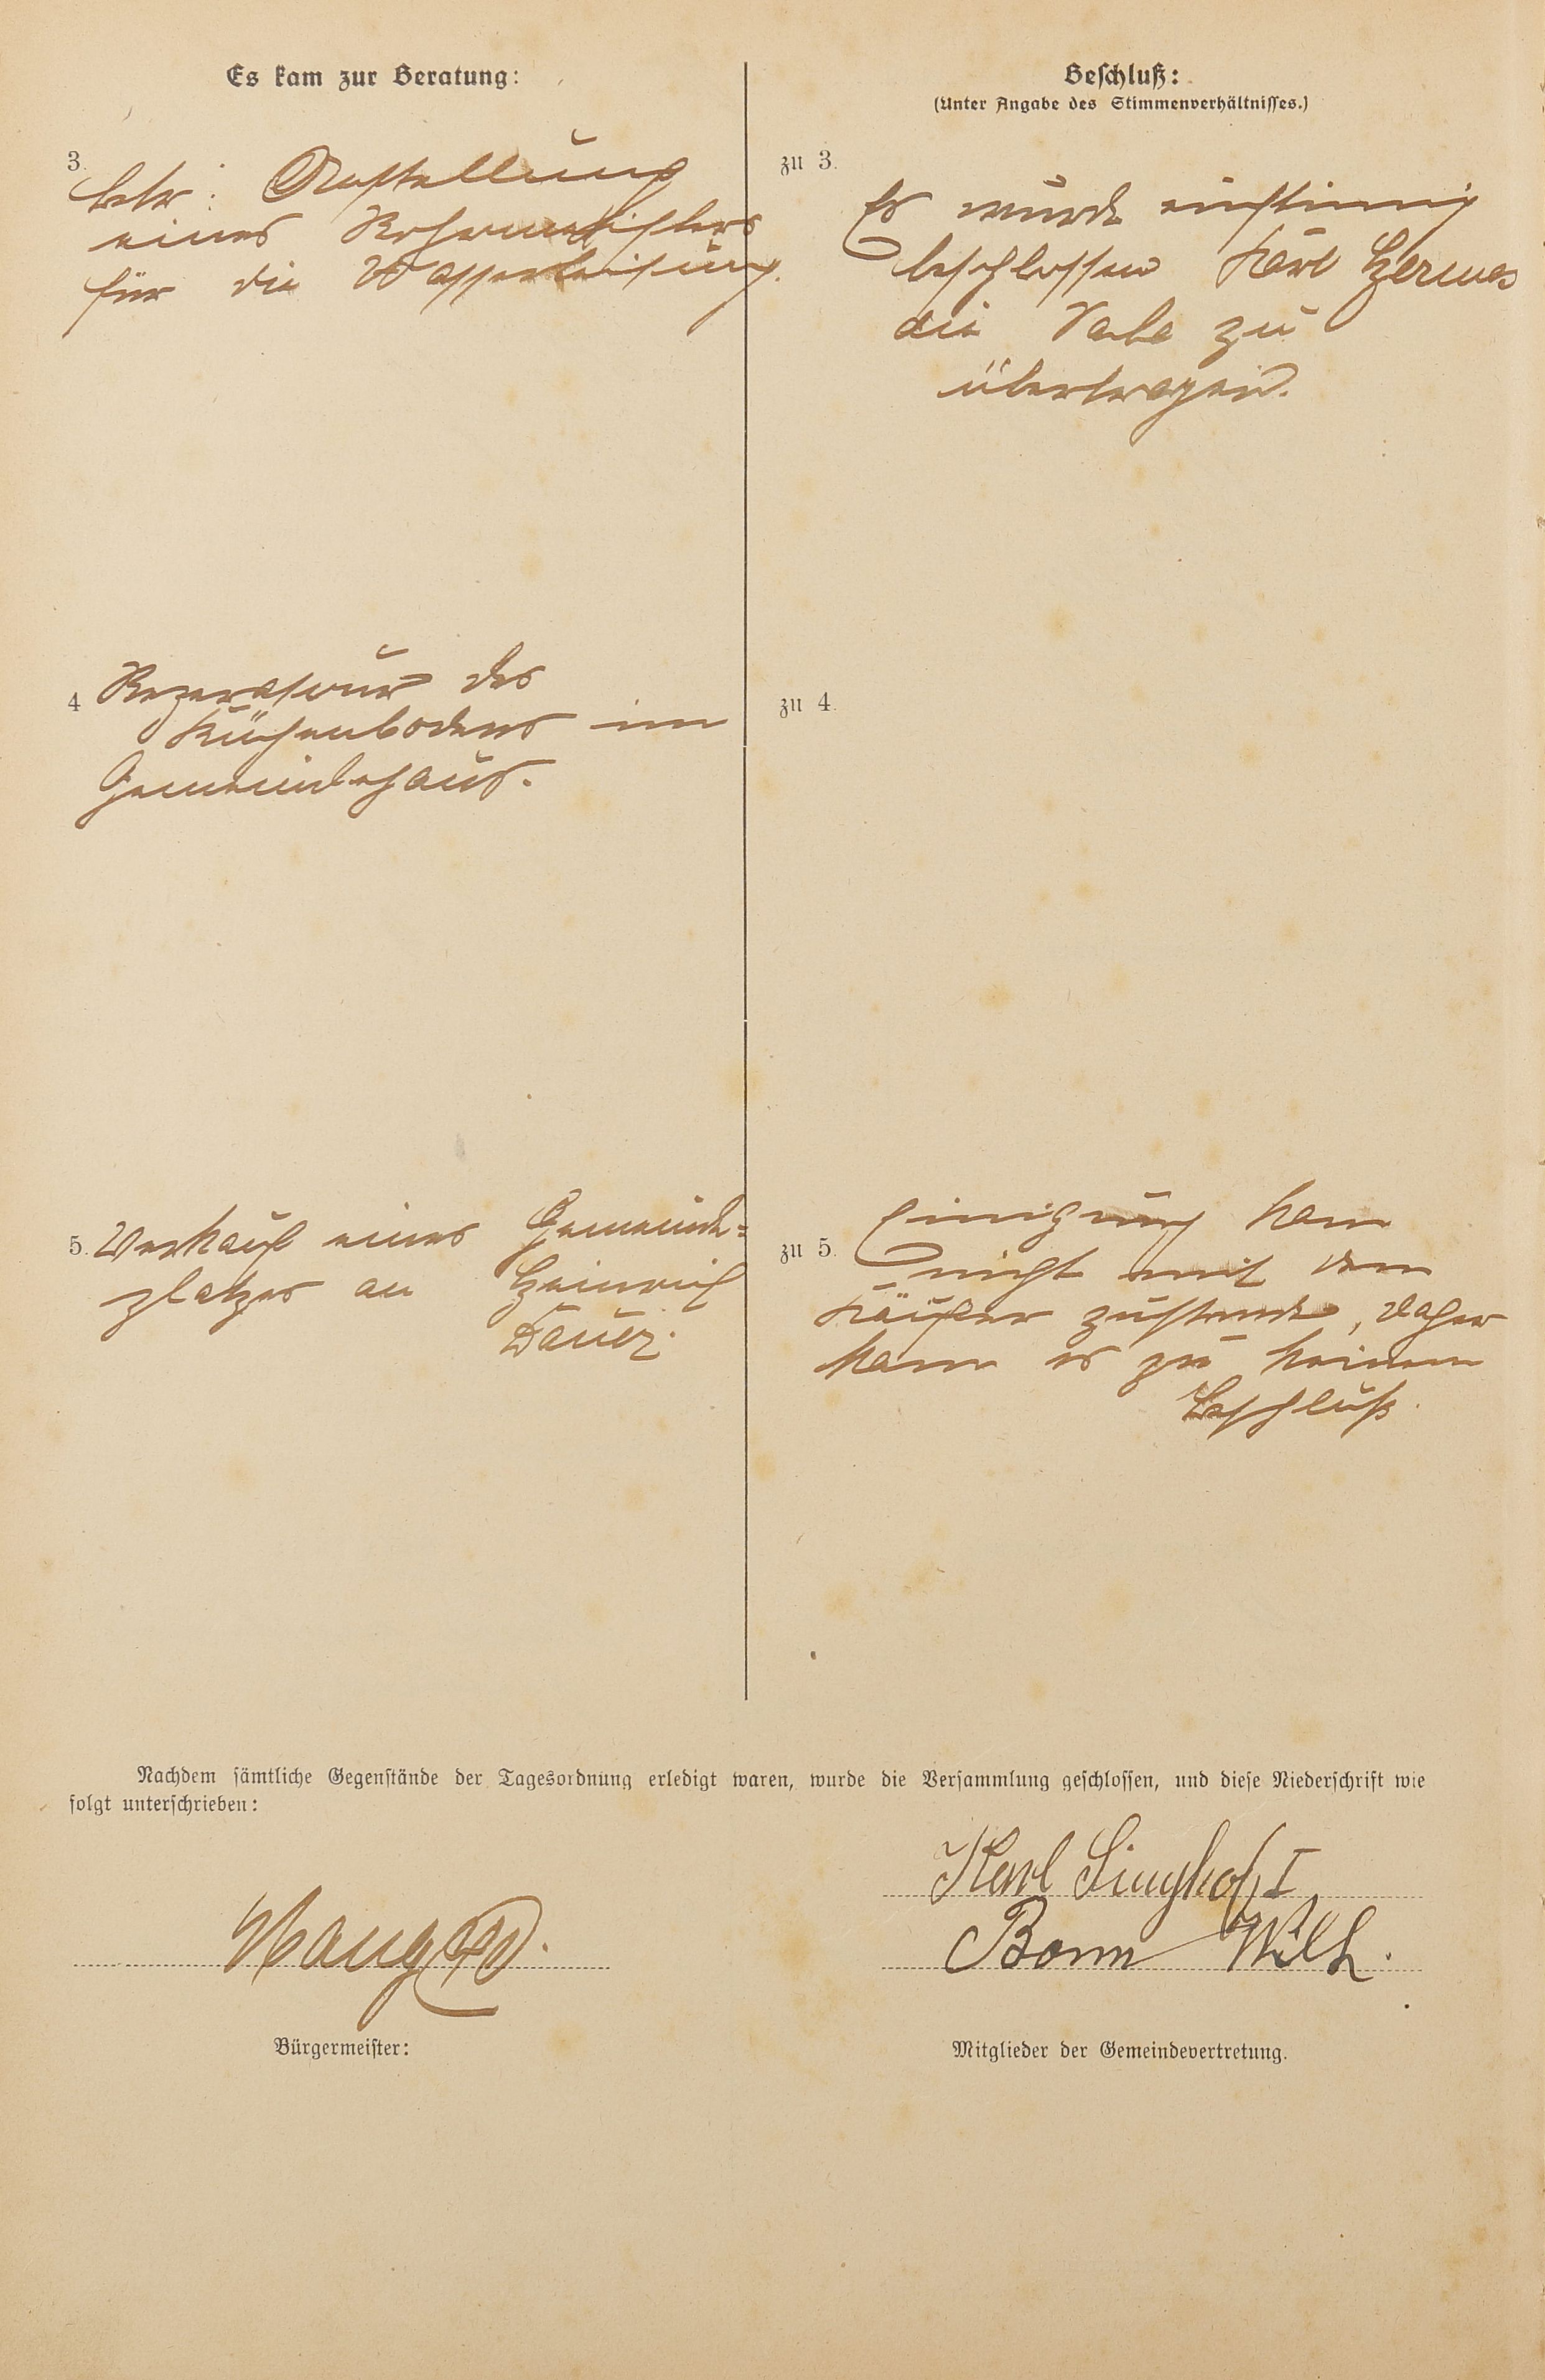 Es kam zur Beratung:
Beschluß:
(Unter Angabe des Stimmenverhältnisses.)
3.
betr: Anstellung
eines Rohrmeisters
für die Wasserleitung.
zu 3.
Es wurde einstimig
beschlossen Karl Hermes
die zu
übertragen.
4
Reperatuur des
Küchenbodens im
Gemeindehaus.
zu 4.
5. Verkauf eines Gemeinde=
platzes an Heinrich
Dauer.
zu 5.
Einigung kam
nicht mit dem
Käufer zustande, daher
kam es zu keinem
Beschluß.
Nachdem sämtliche Gegenstände der Tagesordnung erledigt waren, wurde die Versammlung geschlossen, und diese Niederschrift wie
folgt unterschrieben:
Karl Singhof I
Bonn Wilh.
Bürgermeister:
Mitglieder der Gemeindevertretung.